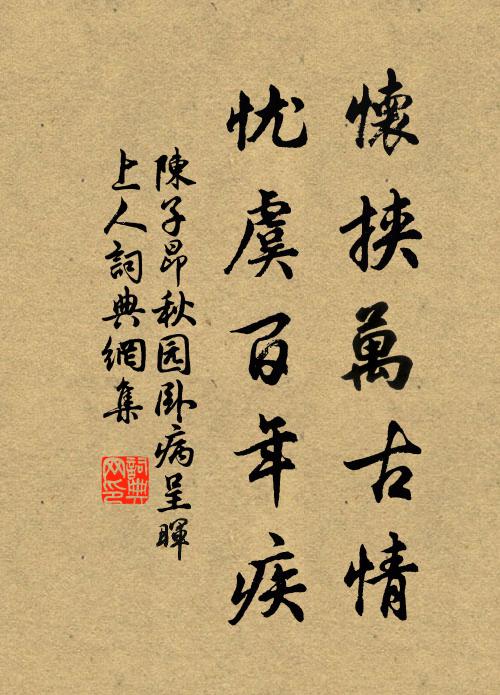 懷挾萬古情
忧虞百年疾
陳子昂秋园卧病呈暉
上人詞典網集
詞典
网印